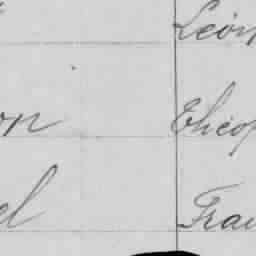 Léon
on Théop
el Fran